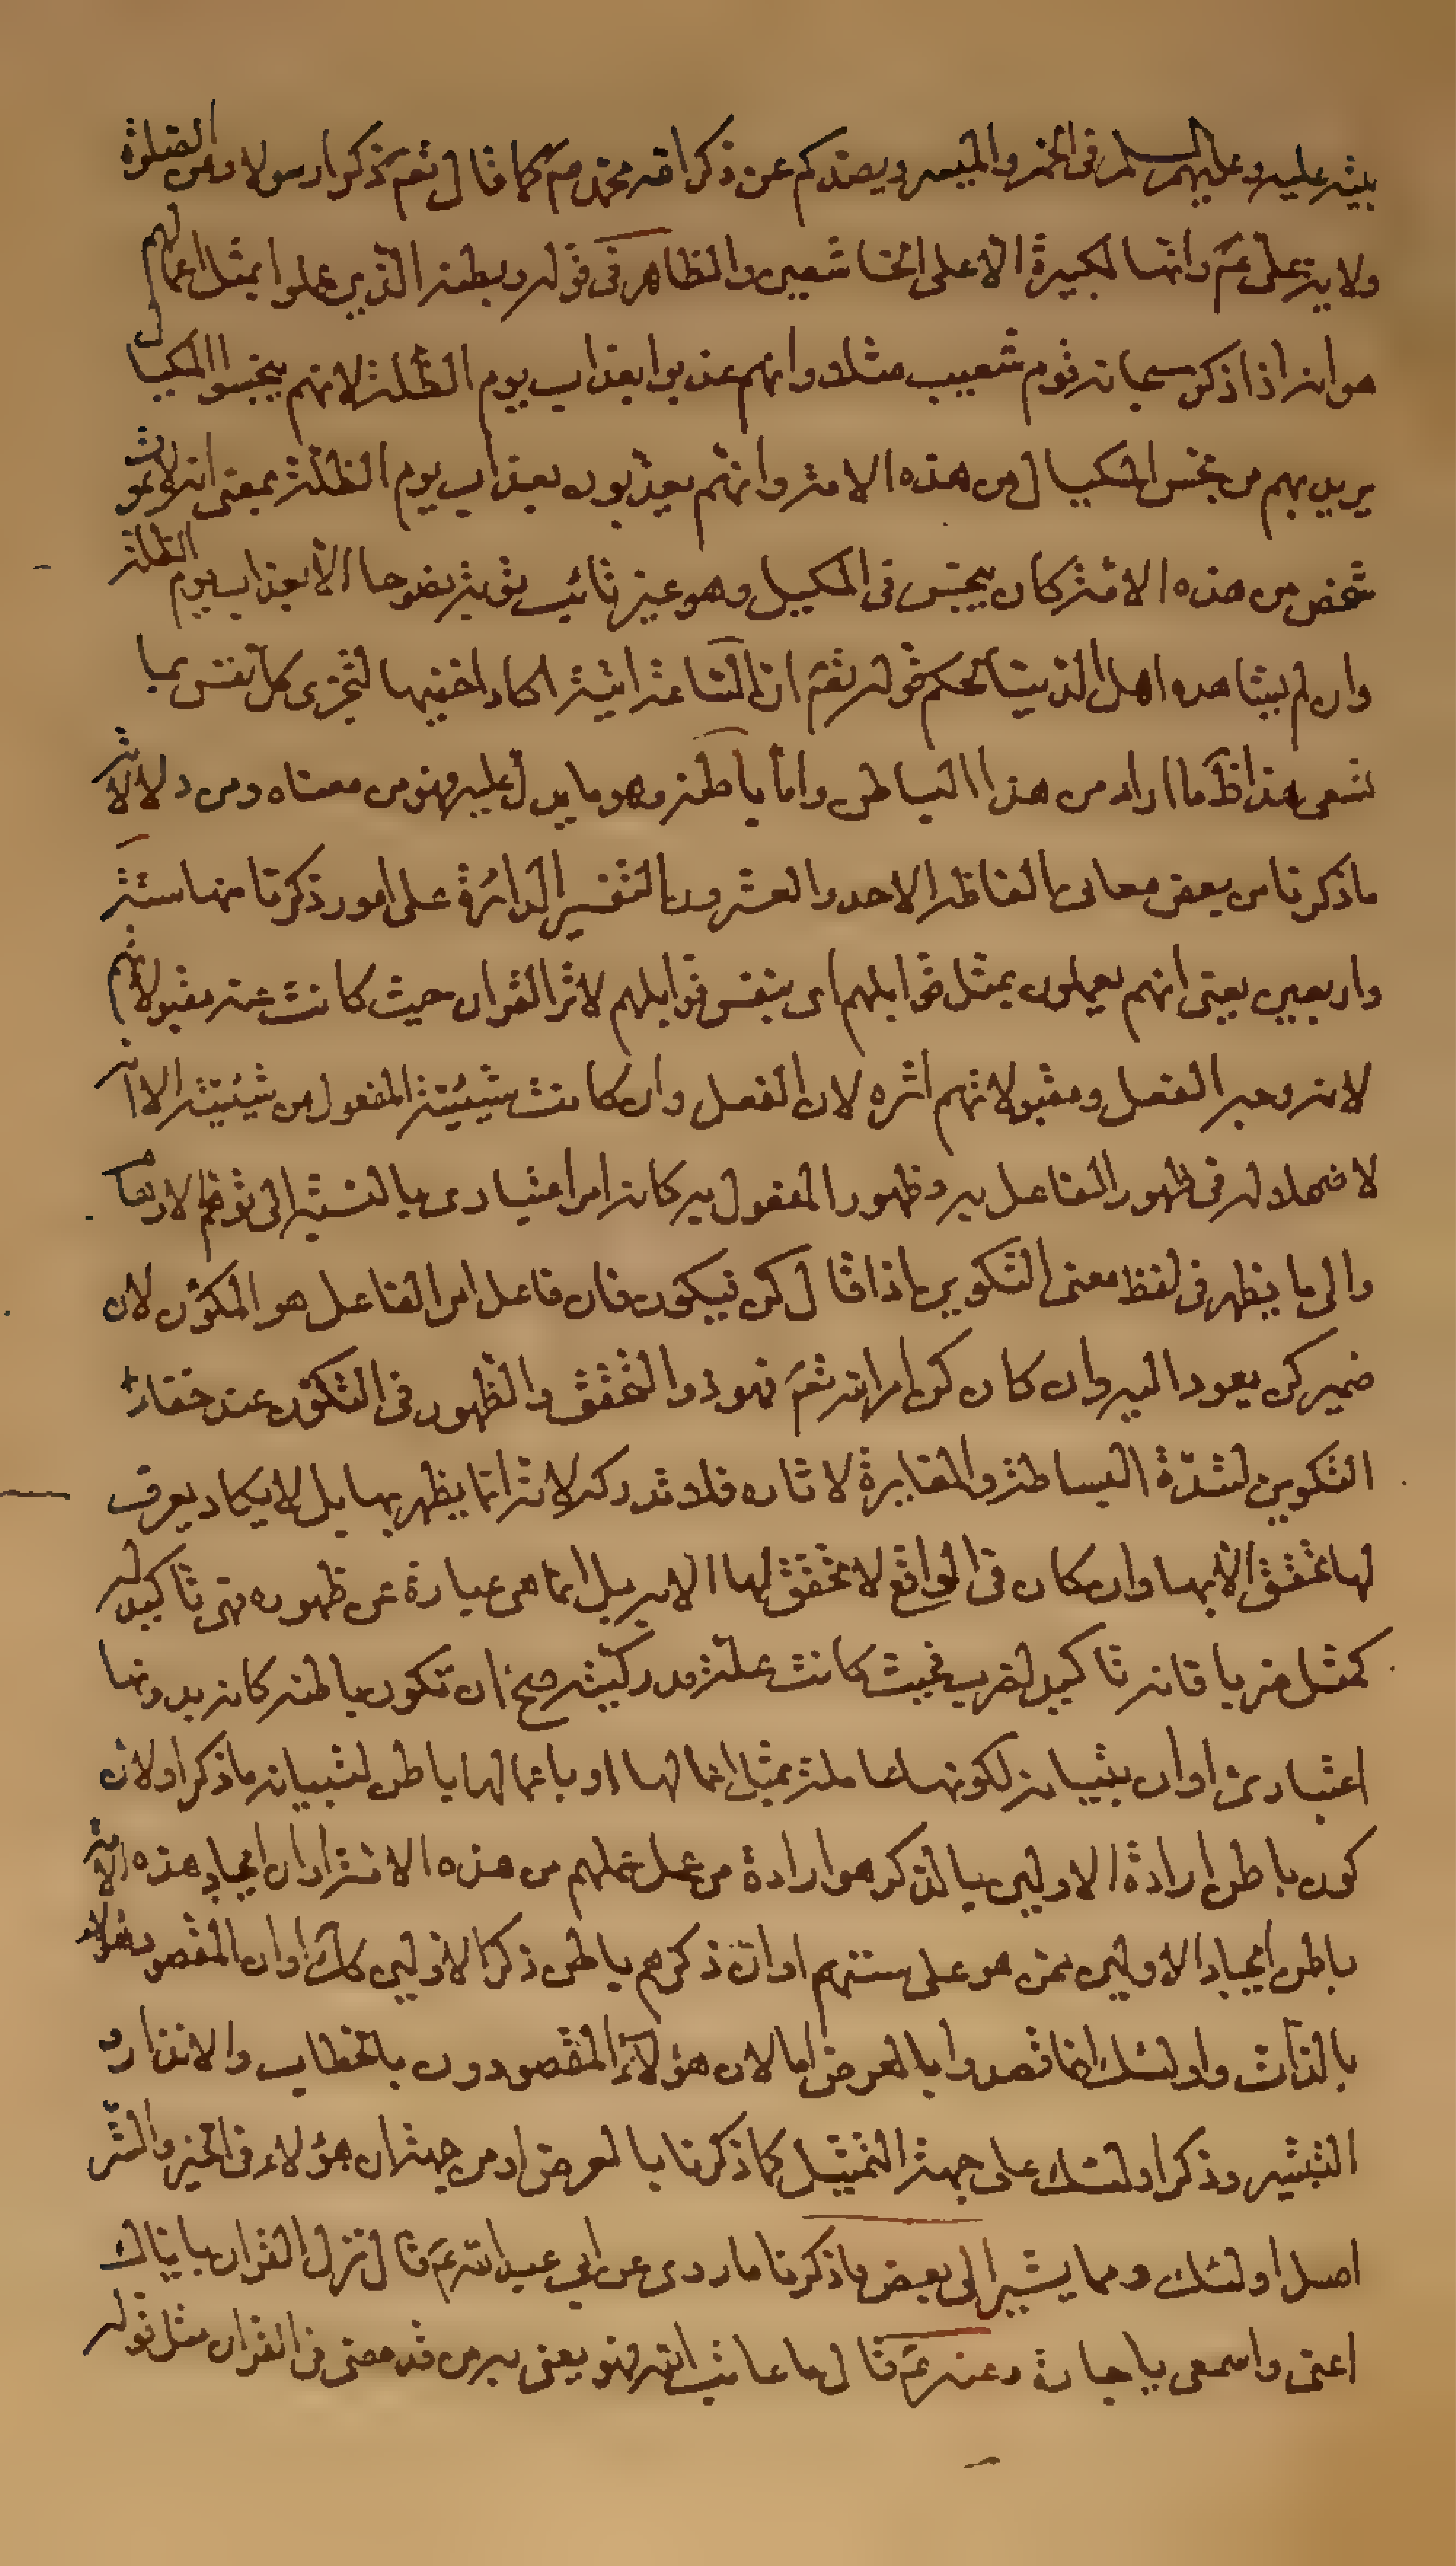 بيته عليه وعليهم السلم في الخمر والميسر ويصدكم عن ذكر الله محمد ص كما قال تع ذكرا رسولا وعن الصلوة
ولاية على ع وانها لكبيرة الا على الخاشعين والظاهر في قوله وبطنه الذين عملوا بمثل اعمالهم
هو انه اذا ذكر سبحانه قوم شعيب مثلا وانهم عذبوا بعذاب يوم الظلة لانهم يبخسوا المكيال
يريد بهم من بخس المكيال من هذه الامة وانهم يعذبون بعذاب يوم الظلة بمعنى انه لا يموت
شخص من هذه الامة كان يبخس في المكيل وهو غير تائب توبة نصوحا الا بعذاب يوم الظلة
وان لم يشاهده اهل الدنيا لحكم قوله تع ان الساعة اتية اكاد اخفيها لتجزى كل نفس بما
تسعى هذا ظ ما اراد من هذا الباطن واما باطنه وهو ما يدل عليه فهو من معناه ومن دلالاته
ما ذكرنا من بعض معانى الفاظه الاحد والعشرون التفسير الدائرة على امور ذكرنا منها ستة
واربعين يعنى انهم يعملون بمثل قوابلهم اى بنفس قوابلهم لاثر القران حيث كانت عنه مقبولاتهم
لانه وجه الفعل ومقبولاتهم اثره لان الفعل وان كانت شيئية المفعول من شيئيته الا انه
لاضمحلاله في ظهور الفاعل به وظهور المفعول به كانه امر اعتبارى بالنسبة الى توهم الارتباط
والى ما يظهر في لفظ معنى التكوين اذا قال كن فيكون فان فاعل امر الفاعل هو المكون لان
ضمير كن يعود اليه وان كان كن امر الله تع فهو ذو التحقق والظهور في التكون عند خفاء
التكوين لشدة البساطة والمغايرة لاثاره فلا تدركه لانه انما يظهر بها بل لا يكاد يعرف
لها تحقق الا بها وان كان في الواقع لا تحقق لها الا به بل انما هى عبارة عن ظهوره فهى تاكيد له
كمثل ضربا فانه تاكيد لضرب فحيث كانت علة مدركيته صح ان تكون باطنه كانه بدونها
اعتبارى او ان بتبيانه لكونها عاملة بمثل اعمالها او باعمالها باطن لتبيانه ما ذكر اولا ان
كون باطن ارادة الاولين بالذكر هو ارادة من عمل عملهم من هذه الامة او ان ايجاد هذه الامة
باطن ايجاد الاولين ممن هو على سنتهم او ان ذكرهم باطن ذكر الاولين كك او ان المقصود هؤلاء
بالذات واولئك انما قصدوا بالعرض اما لان هؤلاء المقصودون بالخطاب والانذار و
التبشير وذكر اولئك على جهة التمثيل كما ذكرنا بالعرض او من جهة ان هؤلاء في الخير والشر
اصل اولئك ومما يشير الى بعض ما ذكرنا ما روى عن ابي عبد الله ع قال نزل القران باياك
اعنى واسمعى يا جارة وعنه ع قال ما عاتب الله فهو يعنى به من قد مضى في القران مثل قوله